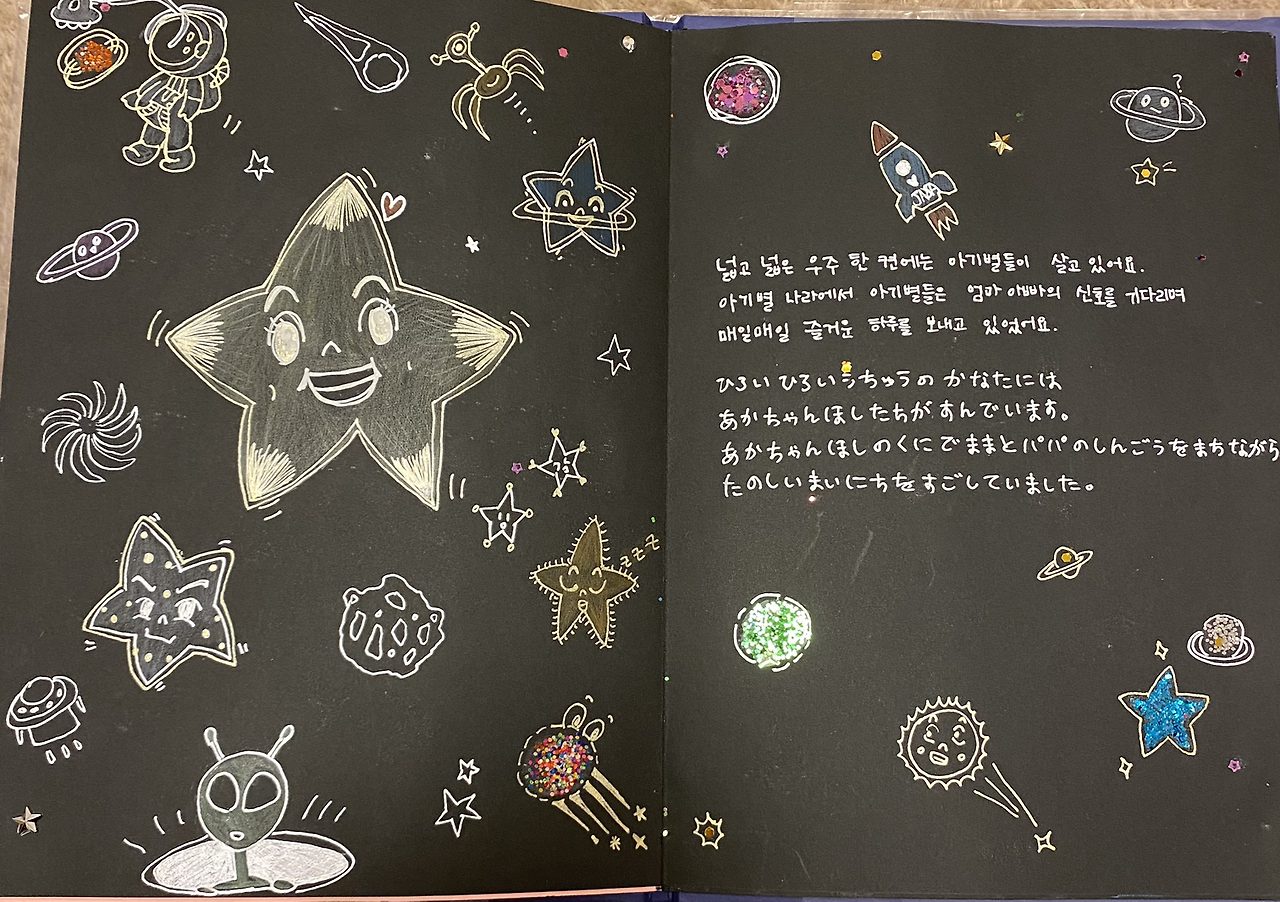 넓고 넓은 우주 한 켠에는 아기별들이 살고 있어요.
아기별 나라에서 아기별들은 엄마 아빠의 신호를 기다리며
매일매일 즐거운 하루를 보내고 있었어요.
ひろい ひろい うちゅうの かなたには
あかちゃんほしたちが すんでいます。
あかちゃんほしのくにで ままとパパのしんごうをまちながら
たのしいまいにちを すごしていました。
?
z z z